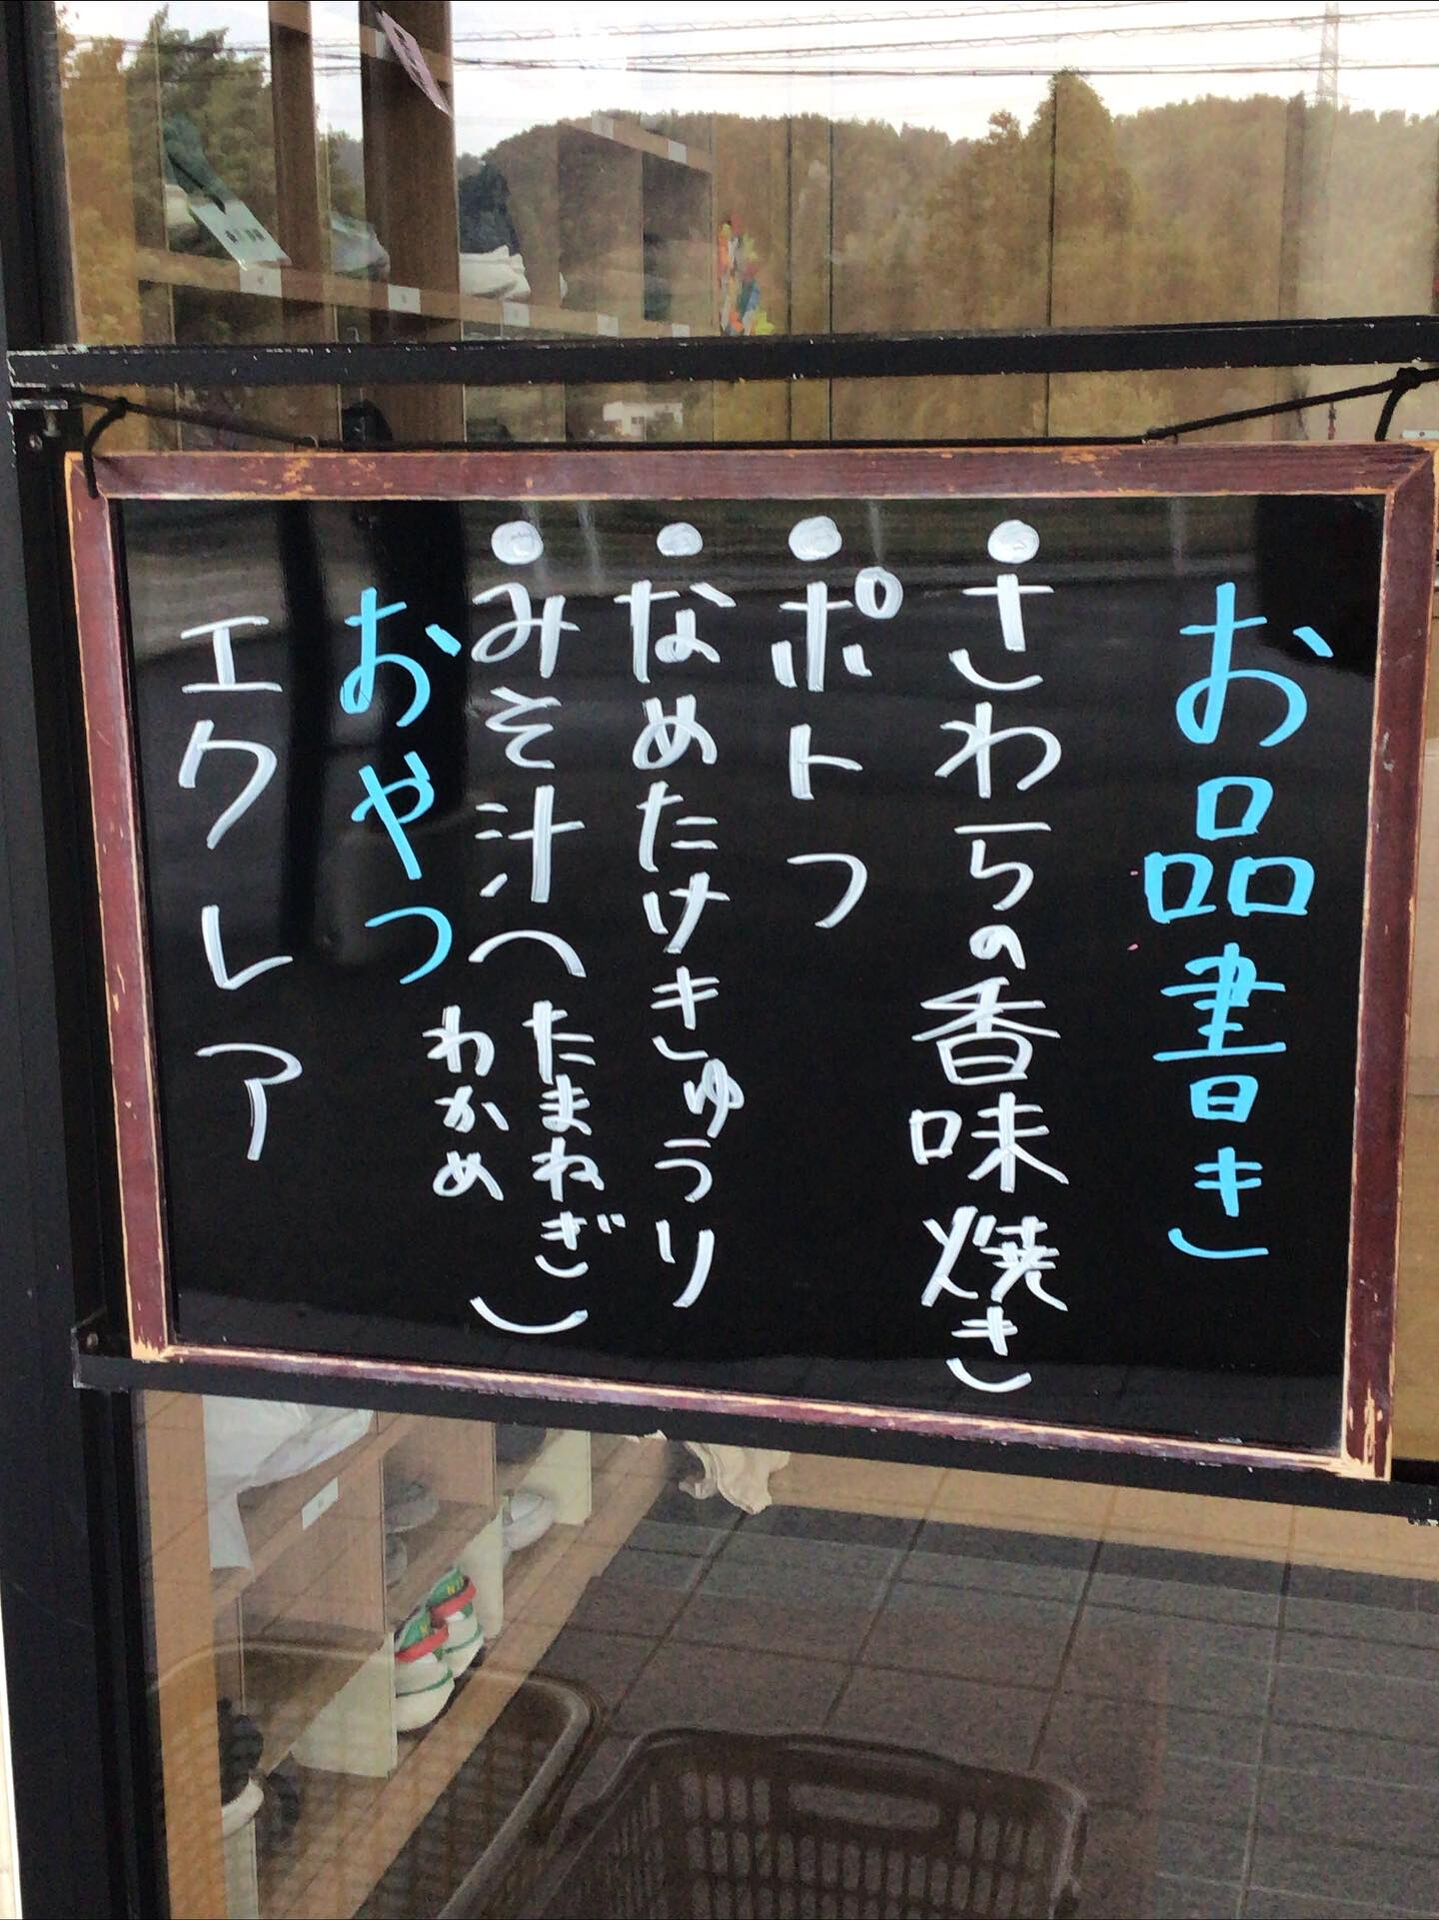 お品書き
・さわらの香味焼き
・ポトフ
・なめたけきゅうり
・みそ汁(たまねぎ
わかめ)
おやつ
エクレア